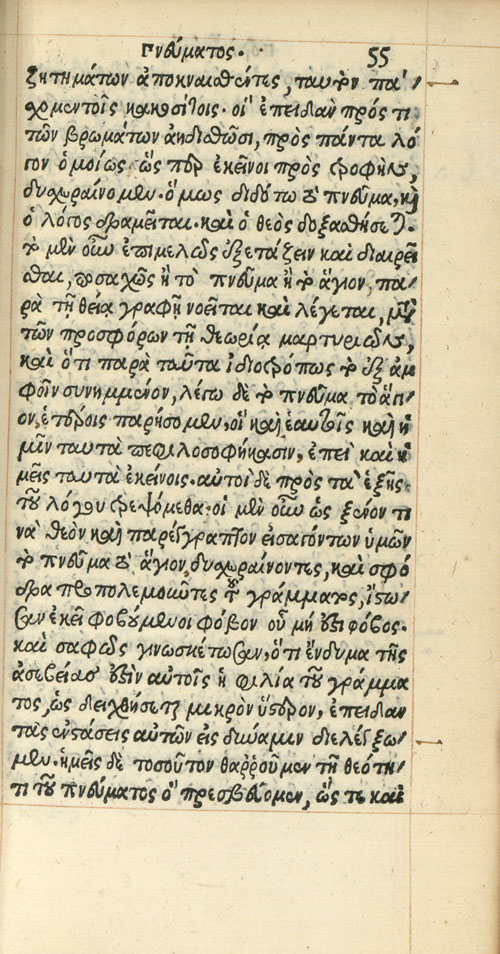 πνεύματος. 55
ζητημάτων ἀποκναισθέντες, ταυτὸν πά/
χομεν τοῖς κακοσίτοις. οἳ ἐπειδὰν πρός τι
τῶν βρωμάτων ἀηδισθῶσι, πρὸς πάντα λό
γον ὁμοίως ὥσπερ ἐκεῖνοι πρὸς τροφὴν,
δυχεραίνομεν. ὅμως διδότω τὸ πνεῦμα, καὶ
ὁ λόγος δραμεῖται. καὶ ὁ θεὸς δοξασθήσεται.
τὸ μὲν οὖν ἐπιμελῶς ἐξετάζειν καὶ διαιρεῖ
σθαι, ποσαχῶς ἢ τὸ πνεῦμα ἢ τὸ ἅγιον, πα/
ρὰ τῇ θείᾳ γραφῇ νοεῖται καὶ λέγεται, μετὰ
τῶν προσφόρων τῇ θεωρίᾳ μαρτυριῶν,
καὶ ὅτι παρὰ ταῦτα ἰδιοτρόπως τὸ ἐξ ἀμ
φοῖν συνημμένον, λέγω δὲ τὸ πνεῦμα τὸ ἅγι
ον, ἑτέροις παρήσομεν, οἳ καὶ ἑαυτοῖς καὶ ἡ
μῖν ταυτὰ πεφιλοσοφήκασιν, ἐπεὶ καὶ ἡ
μεῖς ταυτὰ ἐκείνοις. αὐτοὶ δὲ πρὸς τὰ ἑξῆς
τοῦ λόγου τρεψόμεθα. οἱ μὲν οὖν ὡς ξένον τι
νὰ θεὸν καὶ παρέγγραπτον εἰσαγόντων ἡμῶν
τὸ πνεῦμα τὸ ἅγιον, δυχεραίνοντες, καὶ σφό
δρα προπολεμοῦντες τοῦ γράμματος, ἴστω
σαν ἐκεῖ φοβούμενοι φόβον οὗ μή ἐστι φόβος.
καὶ σαφῶς γινωσκέτωσαν, ὅτι ἔνδυμα τῆς
ἀσεβείας ἐστὶν αὐτοῖς ἡ φιλία τοῦ γράμμα
τος, ὡς δειχθήσεται μικρὸν ὕστερον, ἐπειδὰν
τὰς ἐνστάσεις αὐτῶν εἰς δύναμιν διελέγξω/
μεν. ἡμεῖς δὲ τοσοῦτον θαῤῥοῦμεν τῇ θεότη/
τι τοῦ πνεύματος ὃ πρεσβεύομεν, ὥστε καὶ